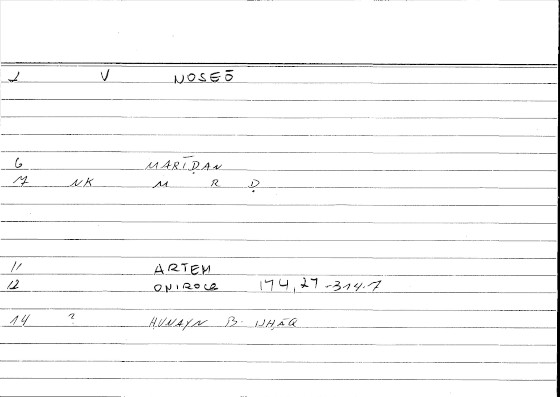 1 V NOSEŌ
6 MARĪḌAN
7 NK M R Ḍ
11 ARTEM
12 ONIROCR 174,27-314.7
14 ? HUNAYN B. ISḤĀQ